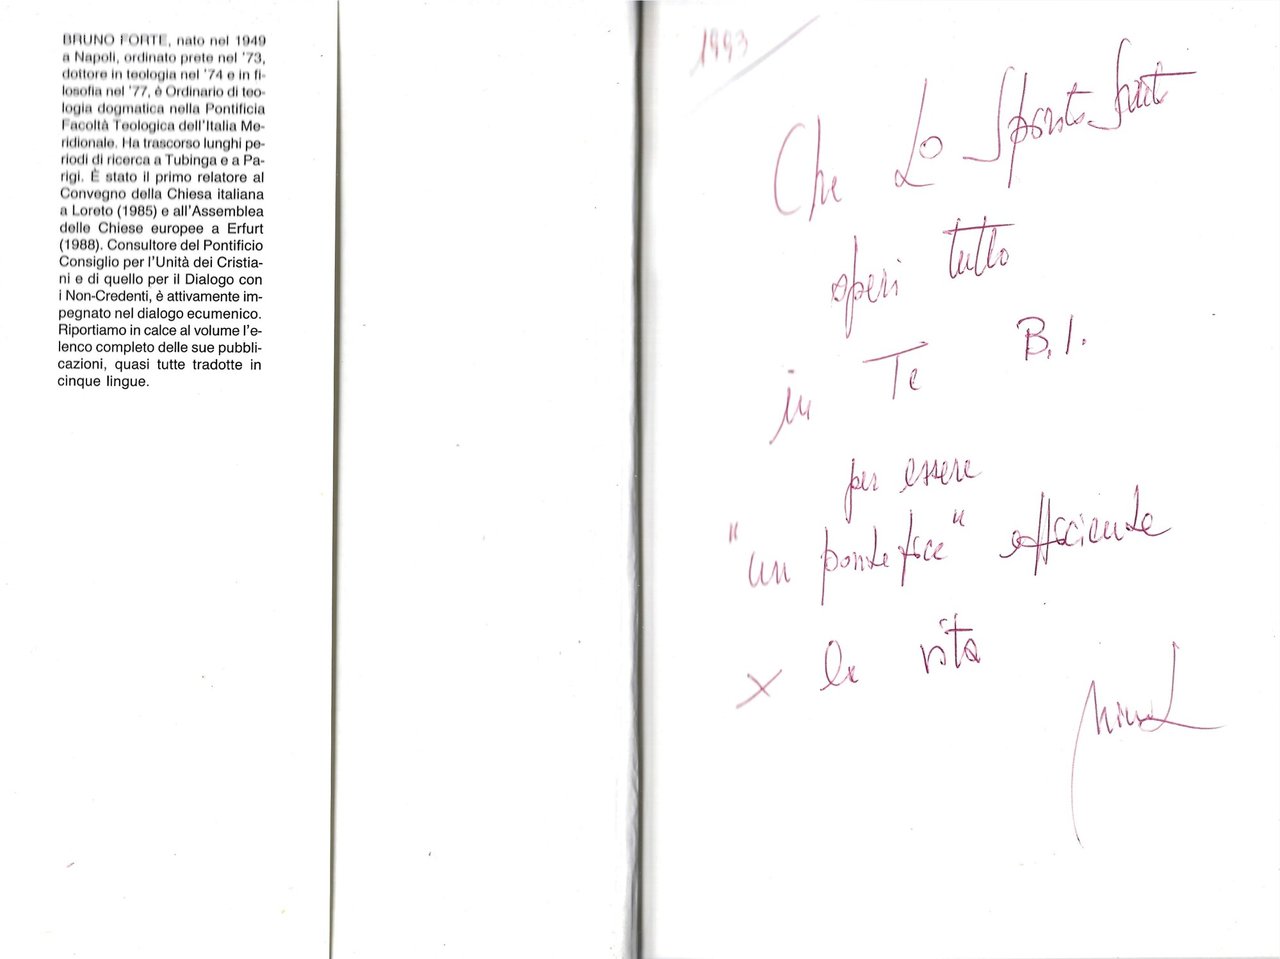 BRUNO FORTE, nato nel 1949
a Napoli, ordinato prete nel '73,
dottore in teologia nel '74 e in fi-
losofia nel '77, è Ordinario di teo-
logia dogmatica nella Pontificia
Facoltà Teologica dell'Italia Me-
ridionale. Ha trascorso lunghi pe-
riodi di ricerca a Tubinga e a Pa-
rigi. È stato il primo relatore al
Convegno della Chiesa italiana
a Loreto (1985) e all'Assemblea
delle Chiese europee a Erfurt
(1988). Consultore del Pontificio
Consiglio per l'Unità dei Cristia-
ni e di quello per il Dialogo con
i Non-Credenti, è attivamente im-
pegnato nel dialogo ecumenico.
Riportiamo in calce al volume l'e-
lenco completo delle sue pubbli-
cazioni, quasi tutte tradotte in
cinque lingue.
1993
Che Lo
operi tutto
in Te B.I.
per essere
"un pontefice" efficiente
x la vita